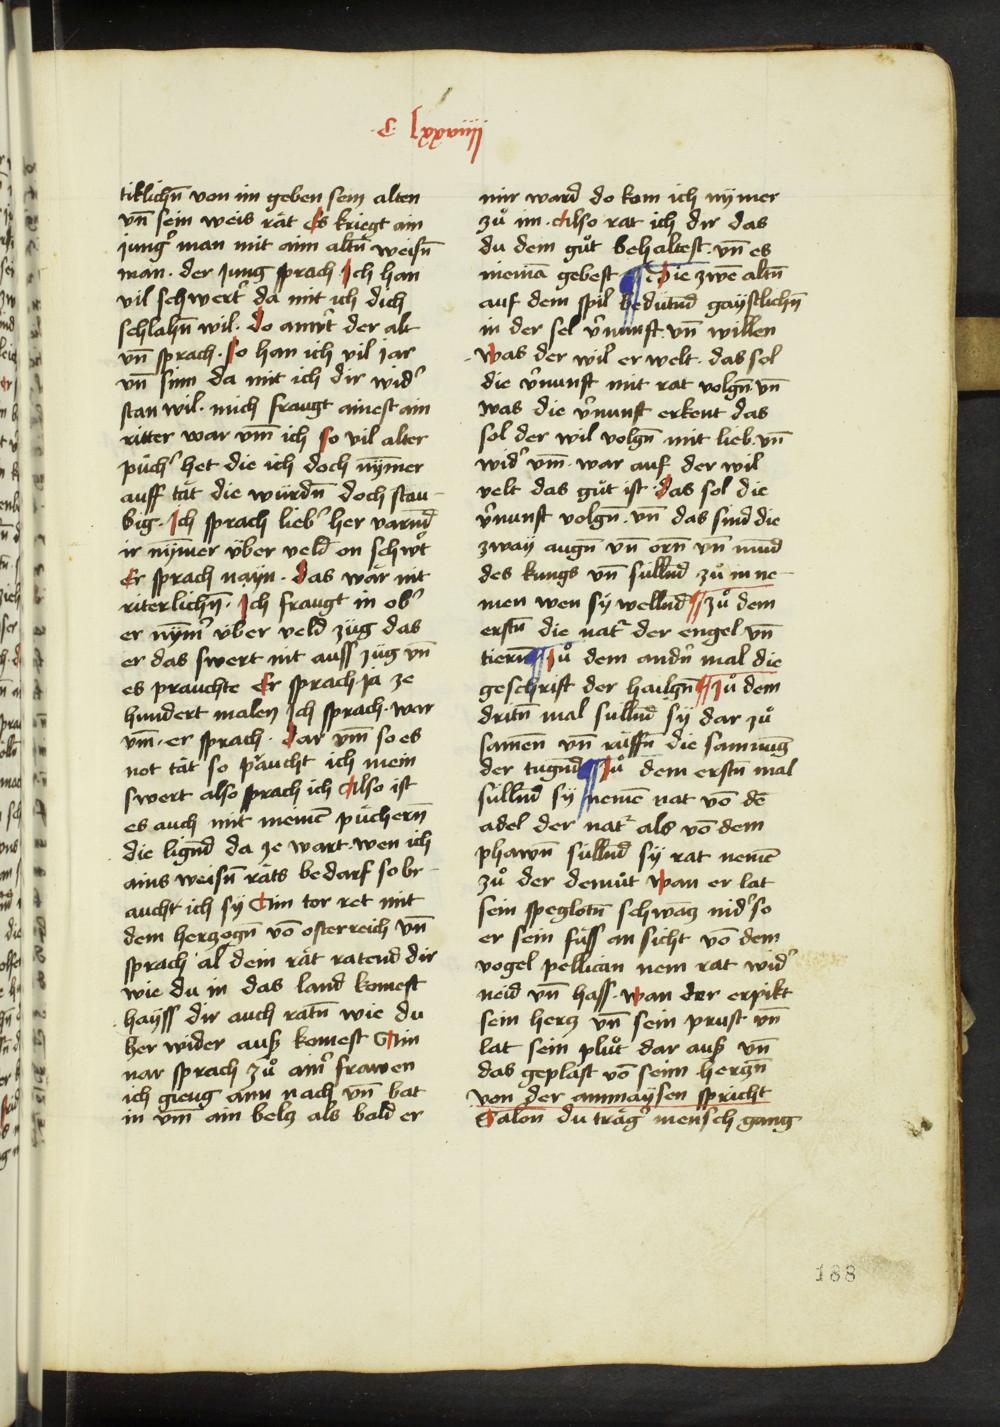 C lxxxviiij
tiklichn̄ von im geben sein alten
vn̄ sein weis rät Es kriegt ain
jungᵉ man mit aim altn̄ weisn̄
man. der Jung sprach Ich han
vil schwertᵉ da mit ich dich
schlahn̄ wil. do antw̄t der alt
vn̄ sprach. so han ich vil iar
vn̄ sinn da mit ich dir widᵉ
stan wil. mich fraugt ainest ain
ritter war vm̄ ich so vil alter
püchᵉ het die ich doch nȳmer
auff tät die würdn̄ doch stau-
big. Ich sprach liebᵉ her varnd̄
ir nȳmer über veld on schw̄t
Er sprach nayn. das wär nit
riterlichn̄. Ich fraugt in obᵉ
er nȳmᵉ über veld züg das
er das swert nit auss züg vn̄
es prauchte Er sprach ja ze
hundert malen Ich sprach. war
vm̄. er sprach. dar vm̄ so es
not tät so praucht ich mein
swert also sprach ich Also ist
es auch mit meinē püchern̄
die lignd̄ da ze wart. wen ich
ains weisn̄ räts bedarf so br-
aucht ich sÿ Ain tor ret mit
dem herzogn̄ vō osterreich vn̄
sprach al dein rät ratend dir
wie du in das land komest
hayss dir auch ratn̄ wie du
her wider auß komest Ain
nar sprach zů ainᵉ frawen
ich gieng ainn nach vn̄ bat
in vm̄ ain belz als bald er
mir ward do kom ich nÿmer
zů im. Also rat ich dir das
du dem gůt behaltest vn̄ es
niemā gebest ¶ Die zwe altn̄
auf dem spil bedütnd gaÿstlichn̄
in der sel v̄nunft. vn̄ willen
Was der wil er welt. das sol
die v̄nunft mit rat volgn̄ vn̄
was die v̄nunft erkent das
sol der wil volgn̄ mit lieb. vn̄
widᵉ vm̄. war auf der wil
velt das gůt ist das sol die
v̄nunft volgn̄. vn̄ das sind die
zwaÿ augn̄ vn̄ orn̄ vn̄ mūd
des kungs vn̄ sülln̄d zů in ne-
men wen sÿ welln̄d ¶ zů dem
erstn̄ die natᵉ der engel vn̄
tiern̄ ¶ Zů dem andn̄ mal die
geschrift der hailgn̄ ¶ Zů dem
dritn̄ mal sulln̄d sÿ dar zů
samen̄ vn̄ rüffn̄ die samnūg
der tugnd̄ ¶ Zů dem erstn̄ mal
sülln̄d sÿ nemē rat vō dē
adel der natᵉ als vō dem
phawn̄ sülln̄d sÿ rat nemē
zů der demůt wan er lat
sein speglotn̄ schwāz nidᵉ so
er sein füss an sicht vō dem
vogel pellican nem rat widᵉ
neid vn̄ hass. wan der erpikt
sein herz vn̄ sein prust vn̄
lat sein plůt dar auß vn̄
das geplast vō seinn herzn̄
von der anmaÿsen spricht
Salon̄ du trägᵉ mensch gang
188